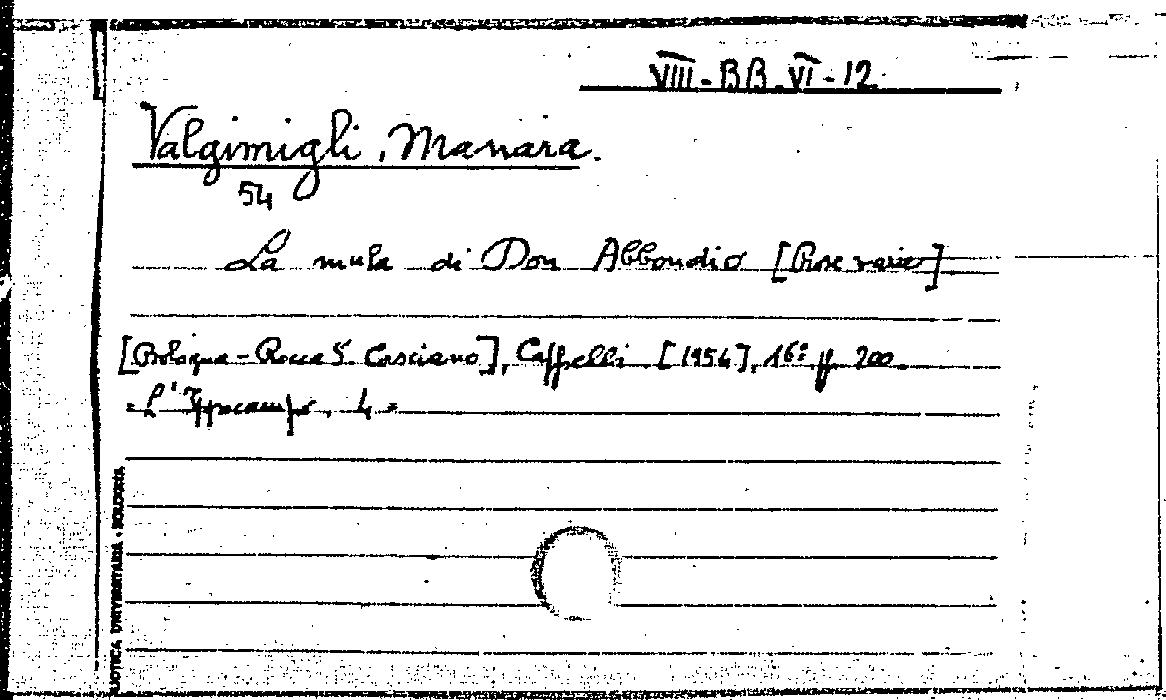 VIII - BB. VI - 12.
Valgimigli, Manara.
54
La mula di Don Abbondio [Prose varie]
[Bologna - Rocca S. Casciano], Cappelli [1954], 16º pp 200.
= L'Ippocampo, 4 =
BIBLIOTECA UNIVERSITARIA • BOLOGNA